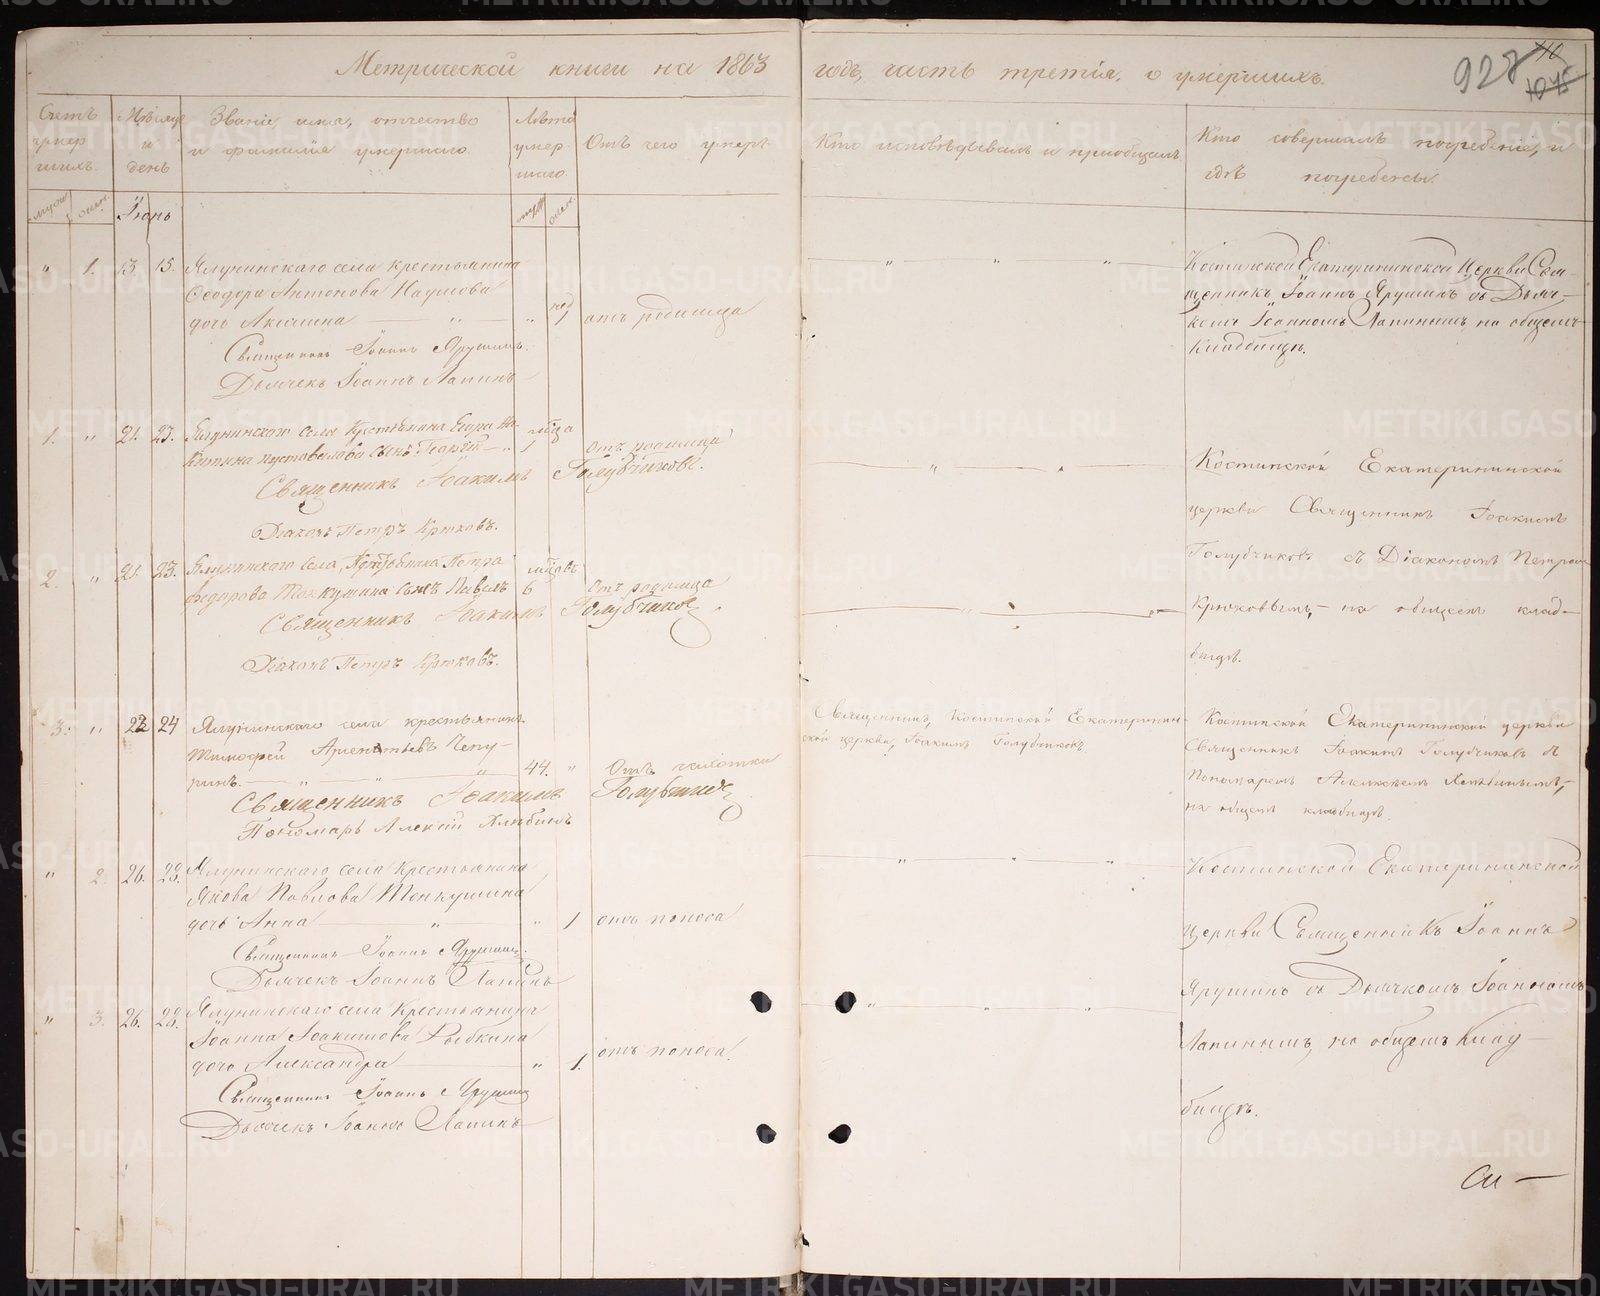 Метрической книги на 1863
годъ, часть третія, о умершихъ.
928
Счетъ умер шихъ.
Мѣсяцъ и день
Званіе, имя, отчество и фамилія умершаго.
Лѣта умер шаго.
Отъ чего умеръ
Кто исповѣдывалъ и пріобщалъ
Кто совершалъ погребеніе, и гдѣ погребены.
Іюнь
" 1. 13. 15. Ялунинскаго села крестьянина
Ѳеодора Антонова Наумова
дочь Акилина " " 1 отъ родимца
Священникъ Іоаннъ Ярушинъ.
Дьячекъ Іоаннъ Лапинъ
Костинской Екатерининской Церкви Свя-
щенникъ Іоаннъ Ярушинъ съ Дьяч-
комъ Іоанномъ Лапинымъ на общемъ
Кладбищѣ.
1. " 21. 23. Ялунинскаго села Крестьянина Егора Ни-
китина сынъ Георгій " 1 Отъ родимца
Священникъ Іоакимъ Голубчиковъ.
Діаконъ Петръ Крюковъ.
Костинской Екатерининской
церкви Священникъ Іоакимъ
Голубчиковъ съ Діакономъ Петромъ
Крюковымъ, на общемъ клад-
бищѣ.
2. " 21. 23. Ялунинскаго села, Петра
Федорова сынъ Павелъ 6 Отъ родимца
Священникъ Іоакимъ Голубчиковъ
Діаконъ Петръ Крюковъ.
3. " 22 24 Ялунинскаго села крестьянинъ
Тимофей Чепу-
ринъ. " " 44. " Отъ чахотки
Священникъ Іоакимъ Голубчиковъ
Пономарь Алексій
Священникъ, Костинской Екатеринин-
ской церкви, Іоакимъ Голубчиковъ
Костинской Екатерининской церкви
Священникъ Іоакимъ Голубчиковъ съ
Пономаремъ Алексѣемъ
на общемъ кладбищѣ.
" 2. 26. 28. Ялунинскаго села Крестьянина
Якова Павлова Тонкушина
дочь Анна " " 1 отъ поноса
Священникъ Іоаннъ Ярушинъ.
Дьячекъ Іоаннъ Лапинъ
Костинской Екатерининской
церкви Священникъ Іоаннъ
Ярушинъ съ Дьячкомъ Іоанномъ
Лапинымъ, на общемъ Клад-
бищѣ.
" 3. 26. 28. Ялунинскаго села Крестьянина
Іоанна Іоакимова Рыбкина
дочь Александра " 1. отъ поноса.
Священникъ Іоаннъ Ярушинъ
Дьячекъ Іоаннъ Лапинъ
METRIKI.GASO-URAL.RU